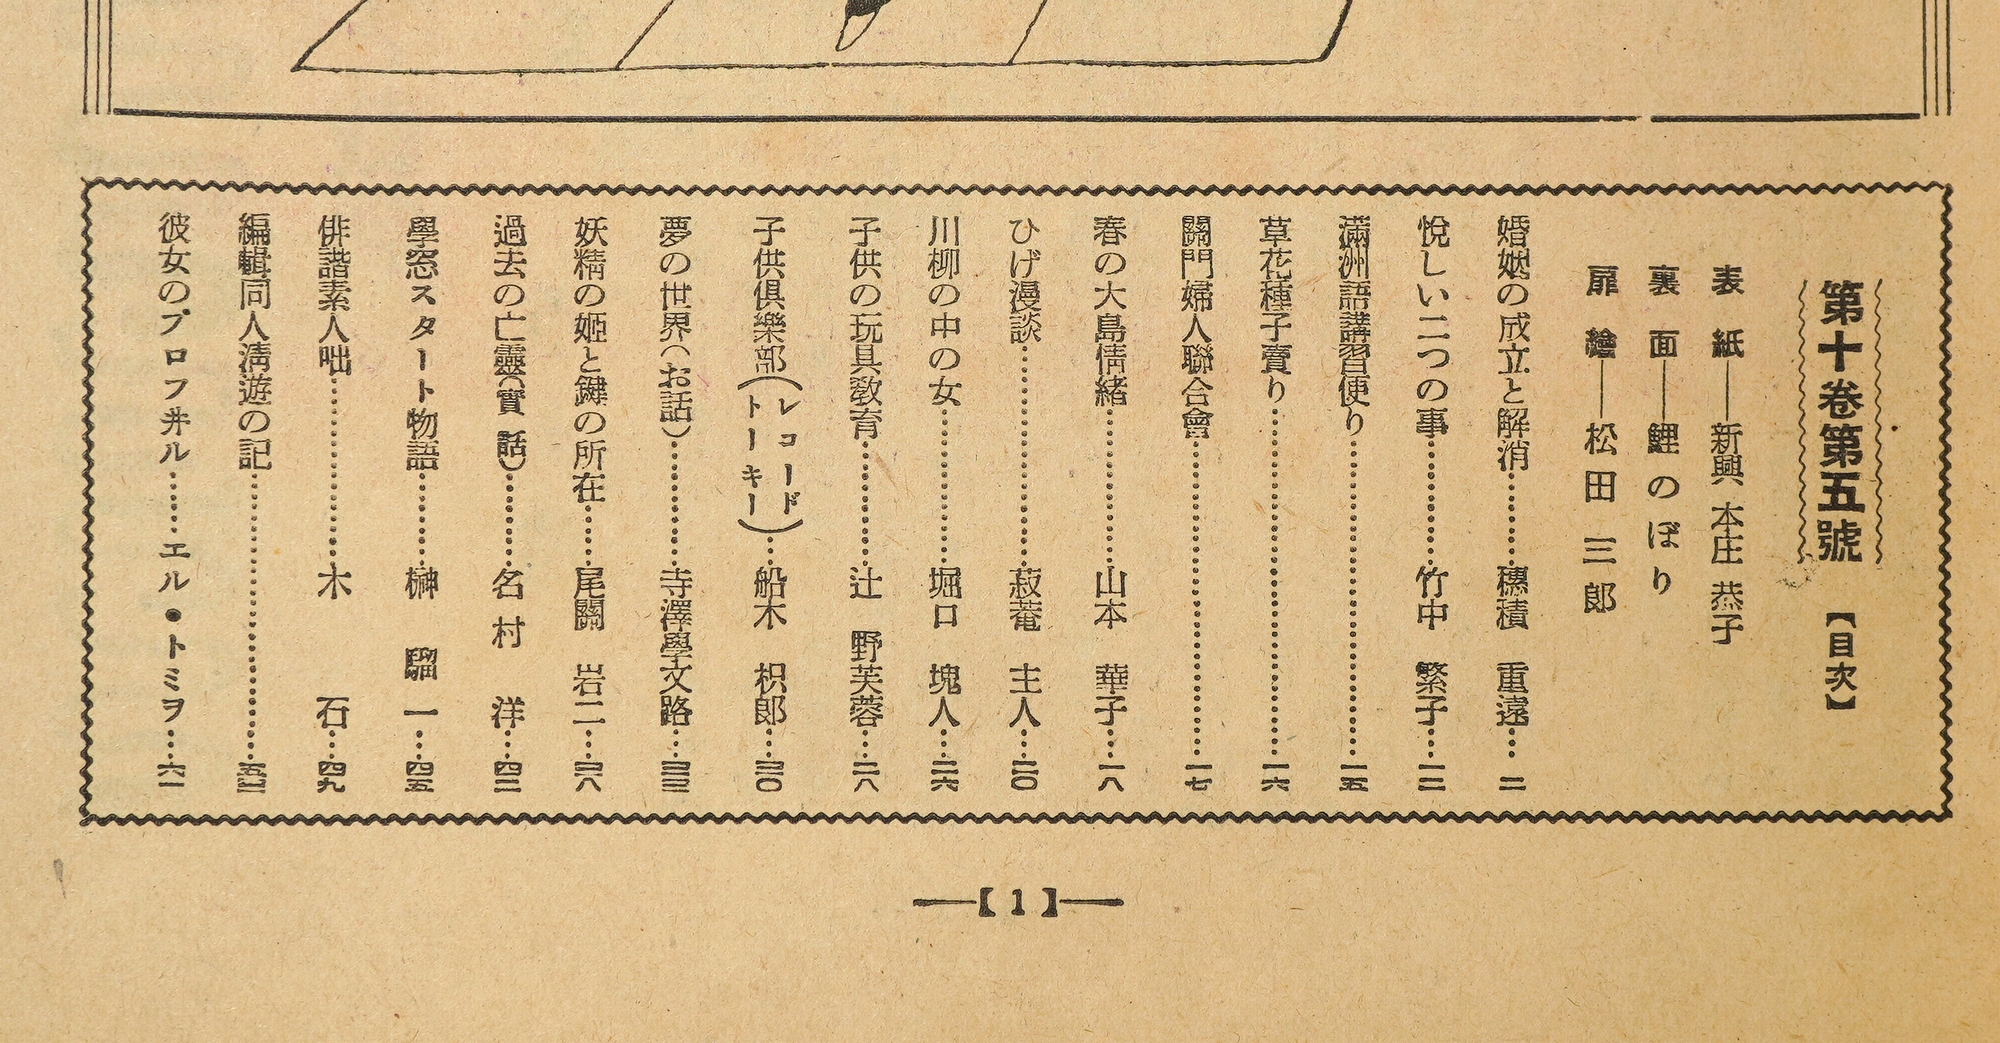 第十卷第五號 【目次】
表紙――新興 本庄 恭子
裏面――鯉のぼり
扉繪――松田三郎
婚姻の成立と解消……穗積 重遠…二
悅しい二つの事……竹中 繁子…一二
滿洲語講習便り……一五
草花種子賣り……一六
關門婦人聯合會……一七
春の大島情緒……山本 華子…一八
ひげ漫談……寂菴 主人…二〇
川柳の中の女……堀口 塊人…二六
子供の玩具教育……辻 野芙蓉…二八
子供俱樂部(レコードトーキー)…船木 枳郎…三〇
夢の世界(お話)……寺澤學文路…三三
妖精の姬と鍵の所在……尾關 岩二…三八
過去の亡靈(實話)……名村 洋…四二
學窓スタート物語……榊 騮一…四五
俳諧素人咄……木石…四九
編輯同人淸遊の記……五三
彼女のプロフ井ル……エル・トミヲ…六一
【1】